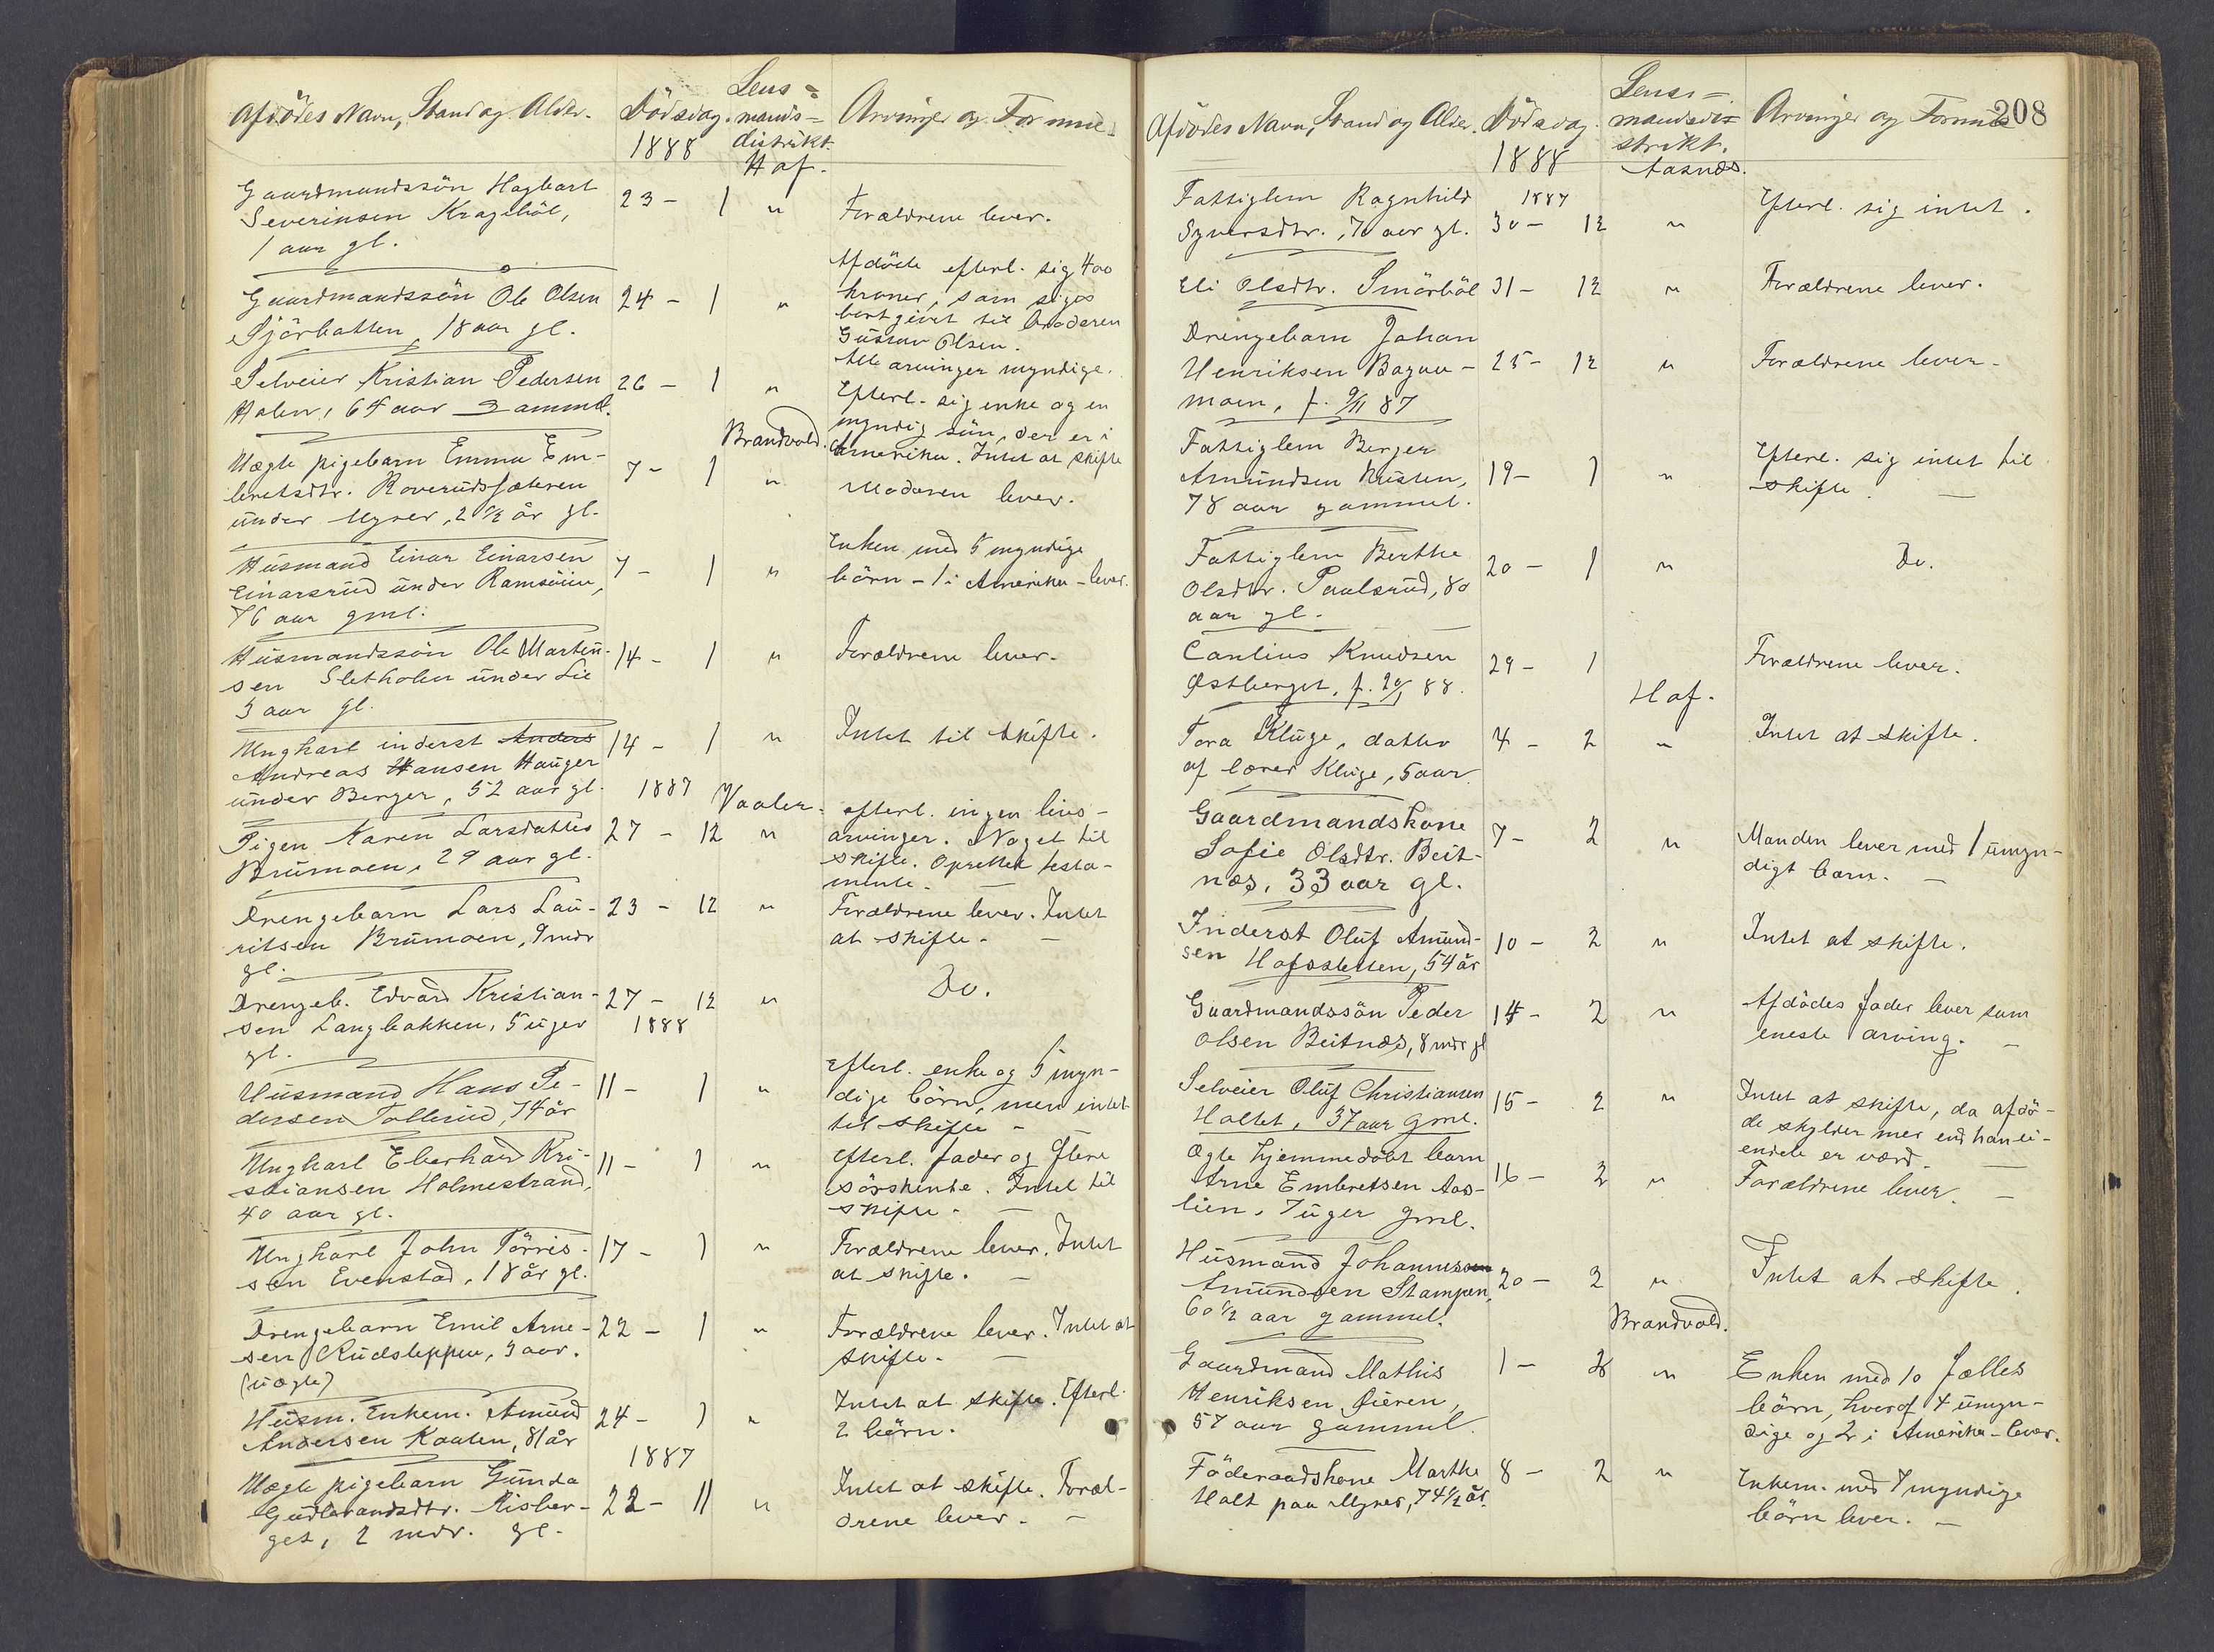 Afdödes Navn, Stand og Alder.
Dödsdag.
1888
Lens=
mands=
distrikt.
Hof.
Arvinger og Formue
Gaardmandssön Hagbart
Severinsen Krageböl,
1 aar gl.
23 - 1 "
Forældrene lever.
Gaardmandssön Ole Olsen
Sjörbotten, 18 aar gl.
24 - 1 "
Afdöde efterl. sig 400
kroner, som siges
bortgivet til broderen
Gustav Olsen.
Alle arvinger myndige.
Selveier Kristian Pedersen
Holen, 64 aar gammel.
26 - 1 "
Efterl. sig enke og en
myndig sön, der er i
Amerika. Intet at skifte
Brandvold.
Uægte pigebarn Emma Em-
bretsdtr. Roverudssæteren
under Myrer, 2 1/2 år gl.
7 - 1 "
Moderen lever.
Husmand Einar Einarsen
Einarsrud under Ramsöiin,
76 aar gml.
7 - 1 "
Enken med 5 myndige
börn - 1 i Amerika - lever.
Husmandssön Ole Martin-
sen Sletholen under Lie
3 aar gl.
14 - 1 "
Forældrene lever.
Ungkarl inderst Anders
Andreas Hansen Hauger
under Berger, 52 aar gl.
14 - 1 "
Intet til skifte.
1887
Vaaler.
Pigen Karen Larsdatter
Brumoen, 29 aar gl.
27 - 12 "
efterl. ingen livs-
arvinger. Noget til
skifte. Oprettet testa-
mente. -
Drengebarn Lars Lau-
ritsen Brumoen, 9 mdr
gl.
23 - 12 "
Forældrene lever. Intet
at skifte. -
Drengeb. Edvard Kristian-
sen Langbakken, 5 uger
gl.
27 - 12 "
Do.
1888
Husmand Hans Pe-
dersen Tollerud, 74 år
11 - 1 "
Efterl. enke og 5 myn-
dige börn, men intet
til skifte -
Ungkarl Eberhard Kri-
stiansen Holmestrand,
40 aar gl.
11 - 1 "
Efterl. fader og flere
söskende. Intet til
skifte. -
Ungkarl John Törris-
sen Evenstad, 18 år gl.
17 - 1 "
Forældrene lever. Intet
at skifte. -
Drengebarn Emil Arne-
sen Rudsleppen, 3 aar.
(uægte)
22 - 1 "
Forældrene lever. Intet at
skifte. -
Husm. Enkem. Amund
Andersen Kaaten, 81 år
24 - 1 "
Intet at skifte. Efterl.
2 börn.
1887
Uægte pigebarn Gunda
Gudbrandsdtr. Risber-
get, 2 mdr. gl.
22 - 11 "
Intet at skifte. Foræl-
drene lever. -
208
Afdödes Navn, Stand og Alder.
Dödsdag.
1888
Lens=
mandsdi=
strikt.
Aasnes.
Arvinger og Formue
1887
Fattiglem Ragnhild
Syversdtr., 70 aar gl.
30 - 12 "
Efterl. sig intet.
Eli Olsdtr. Smörböl
31 - 12 "
Forældrene lever.
Drengebarn Johan
Henriksen Bagaa-
moen, f. 9/11 87
25 - 12 "
Forældrene lever.
Fattiglem Berger
Amundsen Kusten,
78 aar gammel.
19 - 1 "
Efterl. sig intet til
skifte. -
Fattiglem Berthe
Olsdtr. Paulsrud, 80
aar gl.
20 - 1 "
Do.
Cantius Knudsen
Östberget, f. 20/1 88.
29 - 1
Forældrene lever.
Hof.
Tora Kluge, datter
af lærer Kluge, 5 aar
4 - 2 "
Intet at skifte.
Gaardmandskone
Sofie Olsdtr. Beit-
næs, 33 aar gl.
7 - 2 "
Manden lever med 1 umyn-
digt barn. -
Inderst Oluf Amund-
sen Hofsletten, 54 år
10 - 2 "
Intet at skifte.
Gaardmandssön Peder
Olsen Beitnæs, 8 mdr gl
14 - 2 "
Afdödes fader lever som
eneste arving. -
Selveier Oluf Christiansen
Holtet, 37 aar gml.
15 - 2 "
Intet at skifte, da afdö-
de skylder mer end han ei-
endele er værd. -
Ægte hjemmedöbt barn
Arne Embretsen Aas-
lien, 7 uger gml.
16 - 2 "
Forældrene lever. -
Husmand Johannes
Amundsen Stampen,
60 1/2 aar gammel.
20 - 2 "
Intet at skifte.
Brandvold.
Gaardmand Mathis
Henriksen Öieren,
57 aar gammel.
1 - 2 "
Enken med 10 fælles
börn, hvoraf 4 umyn-
dige og 2 i Amerika - lever.
Föderaadskone Marthe
Holt paa Myrer, 74 1/2 år.
8 - 2 "
Enkem. med 7 myndige
börn lever. -